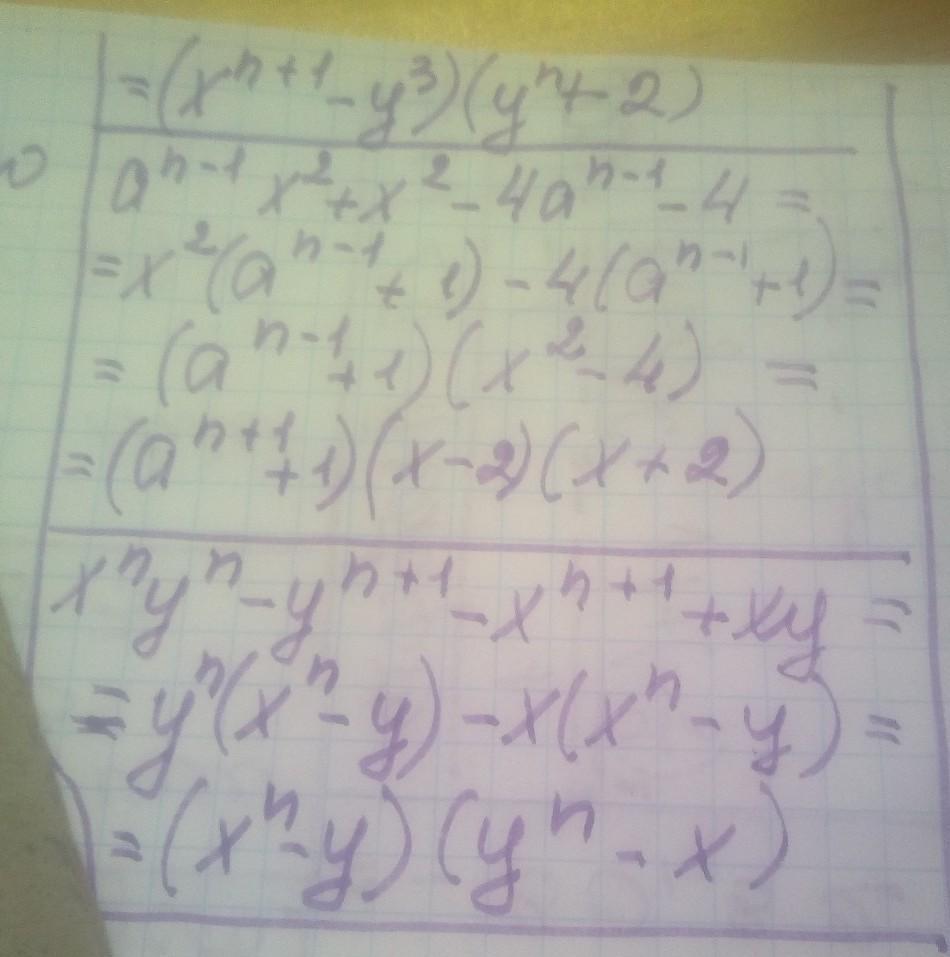 =(xⁿ⁺¹-y³)(yⁿ+2)
aⁿ⁻¹x²+x²-4aⁿ⁻¹-4=
=x²(aⁿ⁻¹+1)-4(aⁿ⁻¹+1)=
=(aⁿ⁻¹+1)(x²-4)=
=(aⁿ⁺¹+1)(x-2)(x+2)
xⁿyⁿ-yⁿ⁺¹-xⁿ⁺¹+xy=
=yⁿ(xⁿ-y)-x(xⁿ-y)=
=(xⁿ-y)(yⁿ-x)